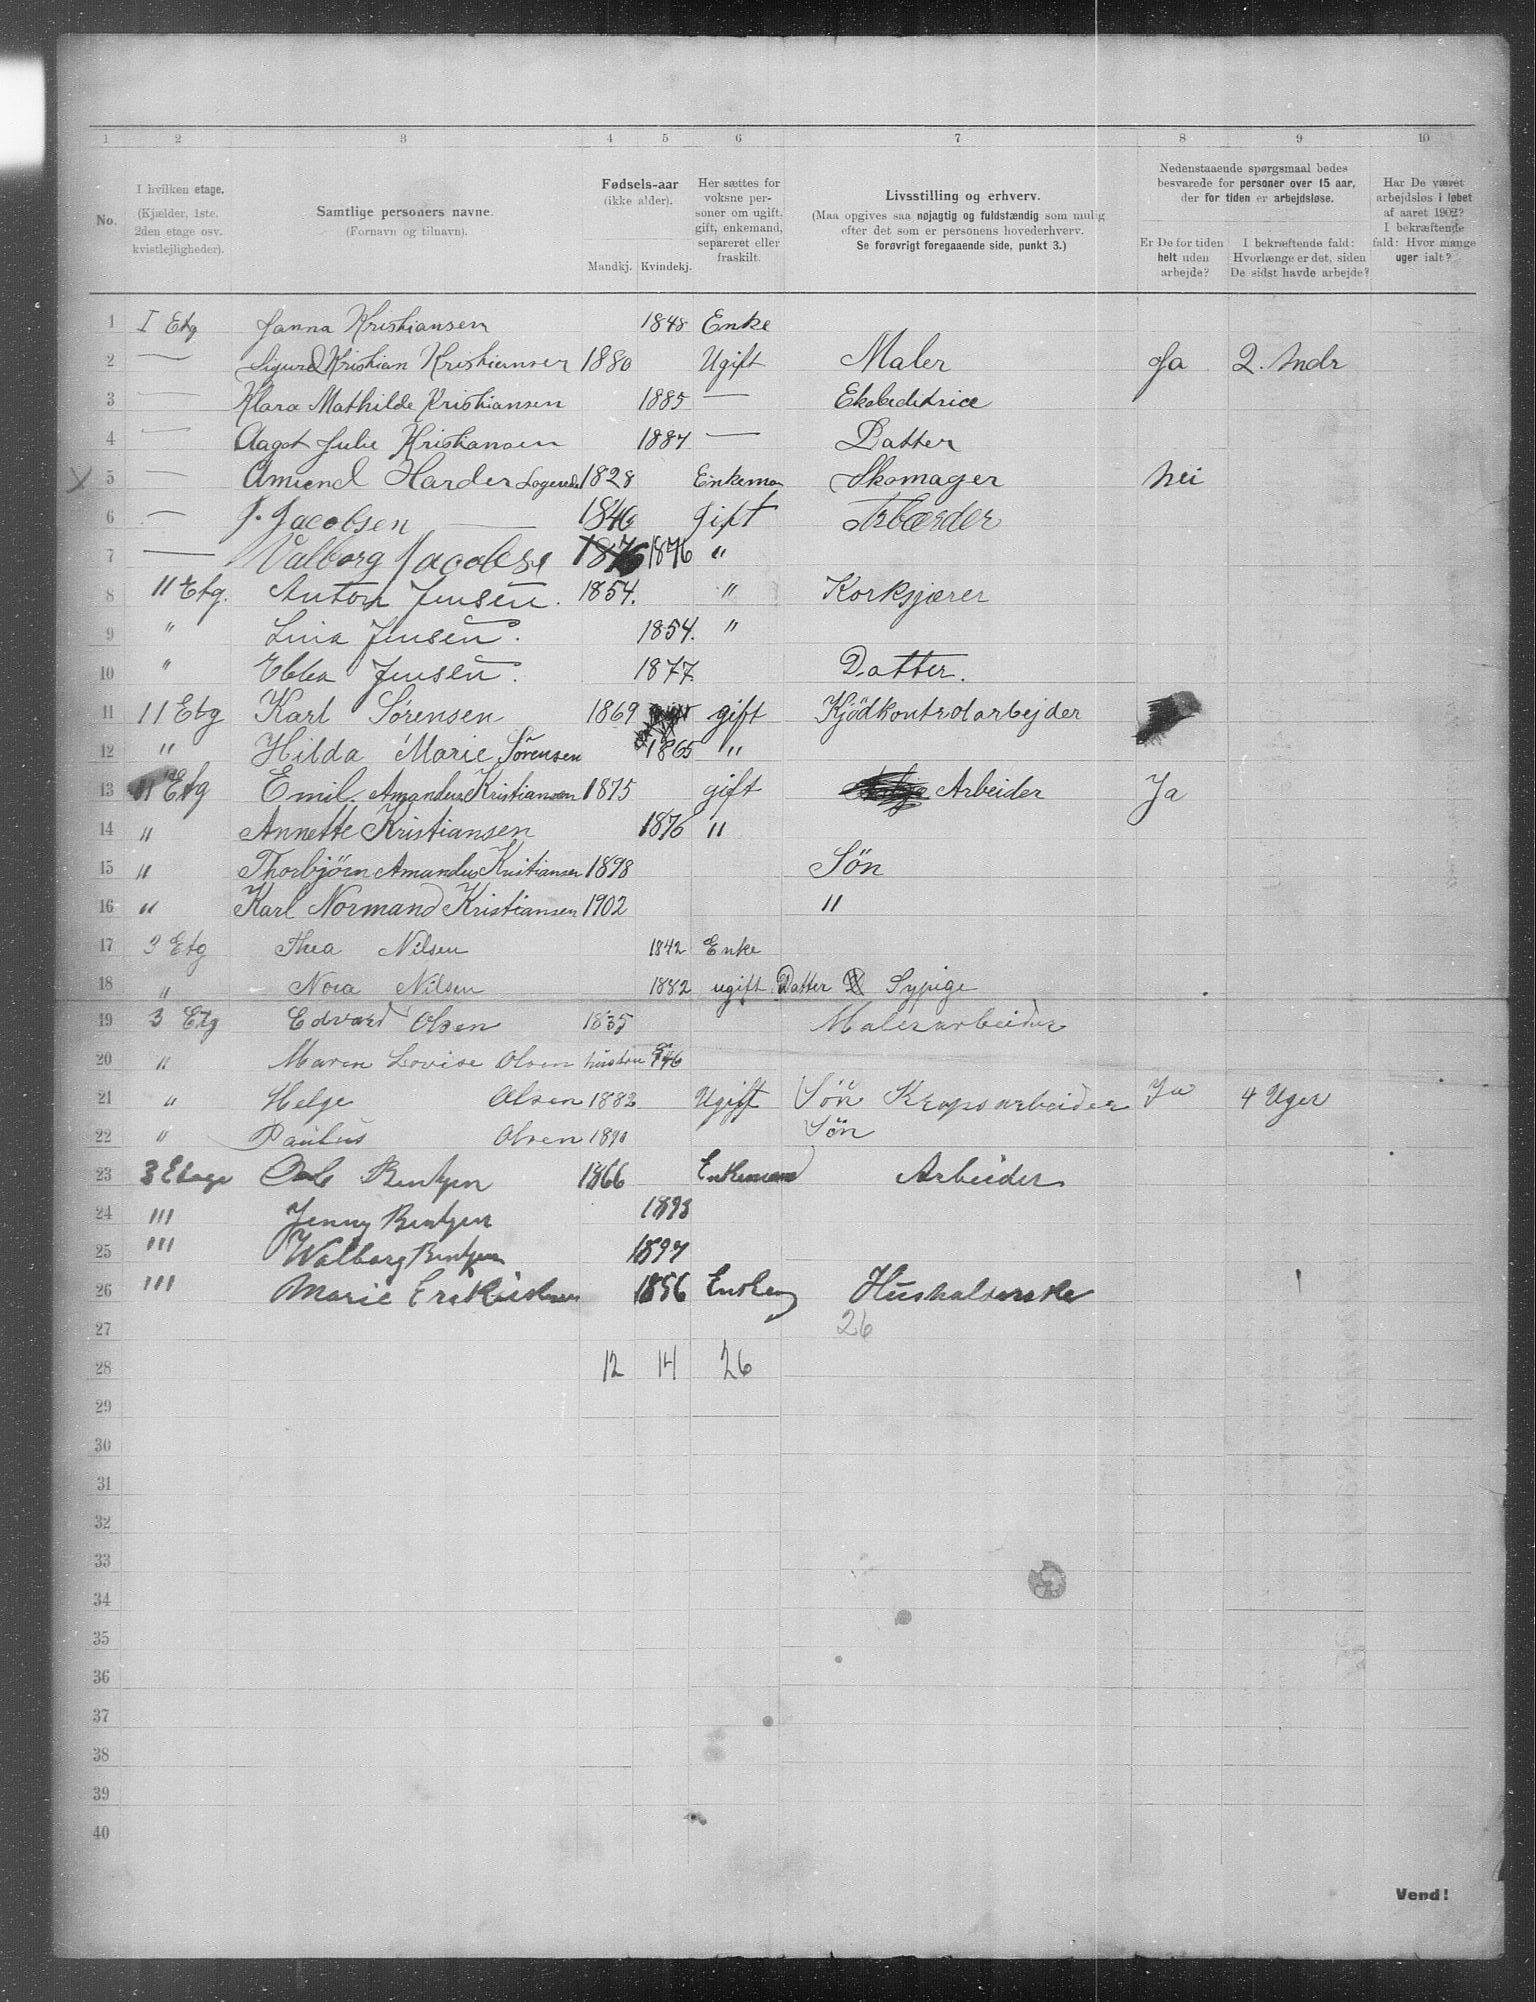 1 2 3 4 5 6 7 8 9 10
No.
I hvilken etage.
(Kjælder, 1ste.
2den etage osv.
kvistlejligheder).
Samtlige personers navne.
(Fornavn og tilnavn).
Fødsels-aar
(ikke alder).
Mandkj. Kvindekj.
Her sættes for
voksne per-
soner om ugift,
gift, enkemand,
separeret eller
fraskilt.
Livsstilling og erhverv.
(Maa opgives saa nøjagtig og fuldstændig som mulig
efter det som er personens hovederhverv.
Se forøvrigt foregaaende side, punkt 3.)
Nedenstaaende spørgsmaal bedes
besvarede for personer over 15 aar,
der for tiden er arbejdsløse.
Er De for tiden
helt uden
arbejde?
I bekræftende fald:
Hvorlænge er det, siden
De sidst havde arbejde?
Har De været
arbejdsløs i løbet
af aaret 1902?
I bekræftende
fald: Hvor mange
uger ialt?
1 I Etg Janna Kristiansen 1848 Enke
2 — Sigurd Kristian Kristiansen 1880 Ugift Maler Ja 2. Mdr
3 — Klara Mathilde Kristiansen 1885 — Ekspeditrice
4 — Aagot Julie Kristiansen 1887 — Datter
5 — Amund Harder Logerende 1828 Enkeman Skomager Nei
6 — J. Jacobsen — 1846 Gift Arbæider
7 — Valborg Jacobsen 1876 1876 "
8 11 Etg. Anton Jensen. 1854. " Korkskjærer
9 " Lina Jensen. 1854. "
10 " Ebba Jensen. 1877 Datter.
11 11 Etg Karl Sørensen 1869 gift Kjödkontrolarbejder
12 " Hilda Marie Sörensen 1865 "
13 11 Etg Emil. Amandus Kristiansen 1875 gift Arbeider Ja
14 " Annette Kristiansen 1876 "
15 " Thorbjörn Amandus Kristiansen 1898 Sön
16 " Karl Normand Kristiansen 1902 "
17 3 Etg Thea Nilsen 1842 Enke
18 " Nora Nilsen 1882 ugift Datter Sypige
19 3 Etg Edvard Olsen 1835 Malerarbeider
20 " Maren Lovise Olsen hustru 46
21 " Helge Olsen 1882 Ugift Sön Arbeider Ja 4 Uger
22 " Paulus Olsen 1890 Sön
23 3 Etage Ole Bentzen 1866 Enkemand Arbeider
24 "' Jenny Bentzen 1893
25 "' Walborg Bentzen 1897
26 "' Marie 1856 Husholderske
27 26
28 12 14 26
29
30
31
32
33
34
35
36
37
38
39
40
Vend!